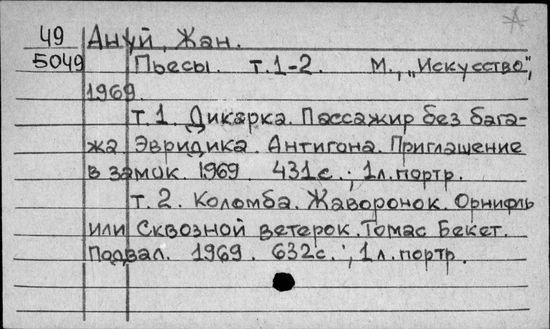 49 Ануй, Жан.
5049 Пьесы. т.1-2. М., „Искусство",
1969.
т 1. Дикарка. Пассажир без бага-
жа Эвридика. Антигона. Приглашение
в замок. 1969 431с.; 1л.портр.
т. 2. Коломба. Жаворонок. Орнифль
или Сквозной ветерок. Томас Бекет.
Подвал. 1969. 632с.; 1л.портр.